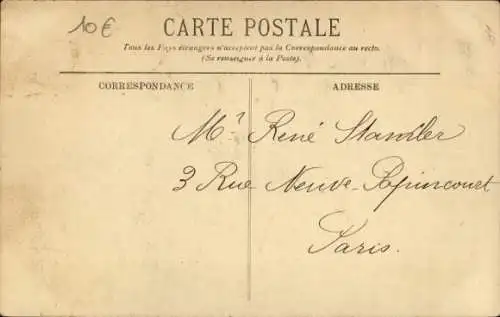 10€
CARTE POSTALE
Tous les Pays étrangers n'acceptent pas la Correspondance au recto.
(Se renseigner à la Poste).
CORRESPONDANCE
ADRESSE
Mr René Standler
3 Rue Neuve-Popincourt
Paris.